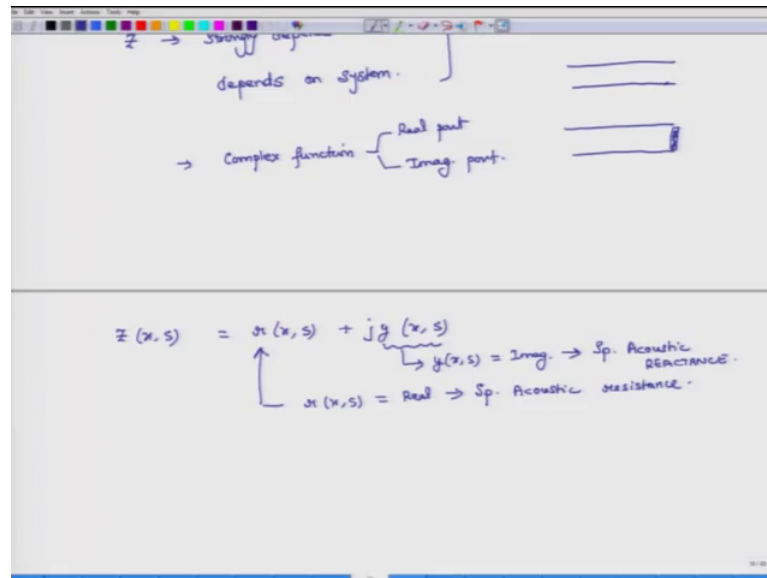 Z → strongly
depends on System.
→ Complex function
Real part
Imag. part.
Z (x, s) = r (x, s) + j y (x, s)
y(x, s) = Imag. → Sp. Acoustic
REACTANCE.
r (x, s) = Real → Sp. Acoustic resistance.